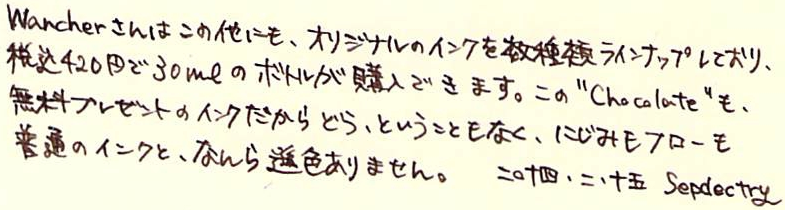 Wancherさんはこの他にも、オリジナルのインクを数種類ラインナップしており、
税込420円で30mlのボトルが購入できます。この"Chocolate"も、
無料プレゼントのインクだからどう、ということもなく、にじみもフローも
普通のインクと、なんら遜色ありません。 二〇十四・二・十五 Sepdectry